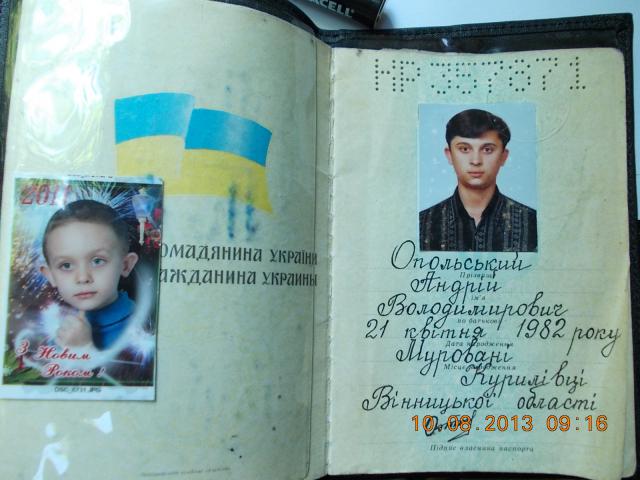 ACELL
2011
З Новим
Роком!
DSC_6731.JPG
ОМАДЯНИНА УКРАЇНИ
АЖДАНИНА УКРАИНЫ
АР357871
Опольський
Прізвище
Андрій
ім'я
Володимирович
по батькові
21 квітня 1982 року
Дата народження
Муровані
Місце народження
Курилівці
Вінницької області
10.08.2013 09:16
Підпис власника паспорта